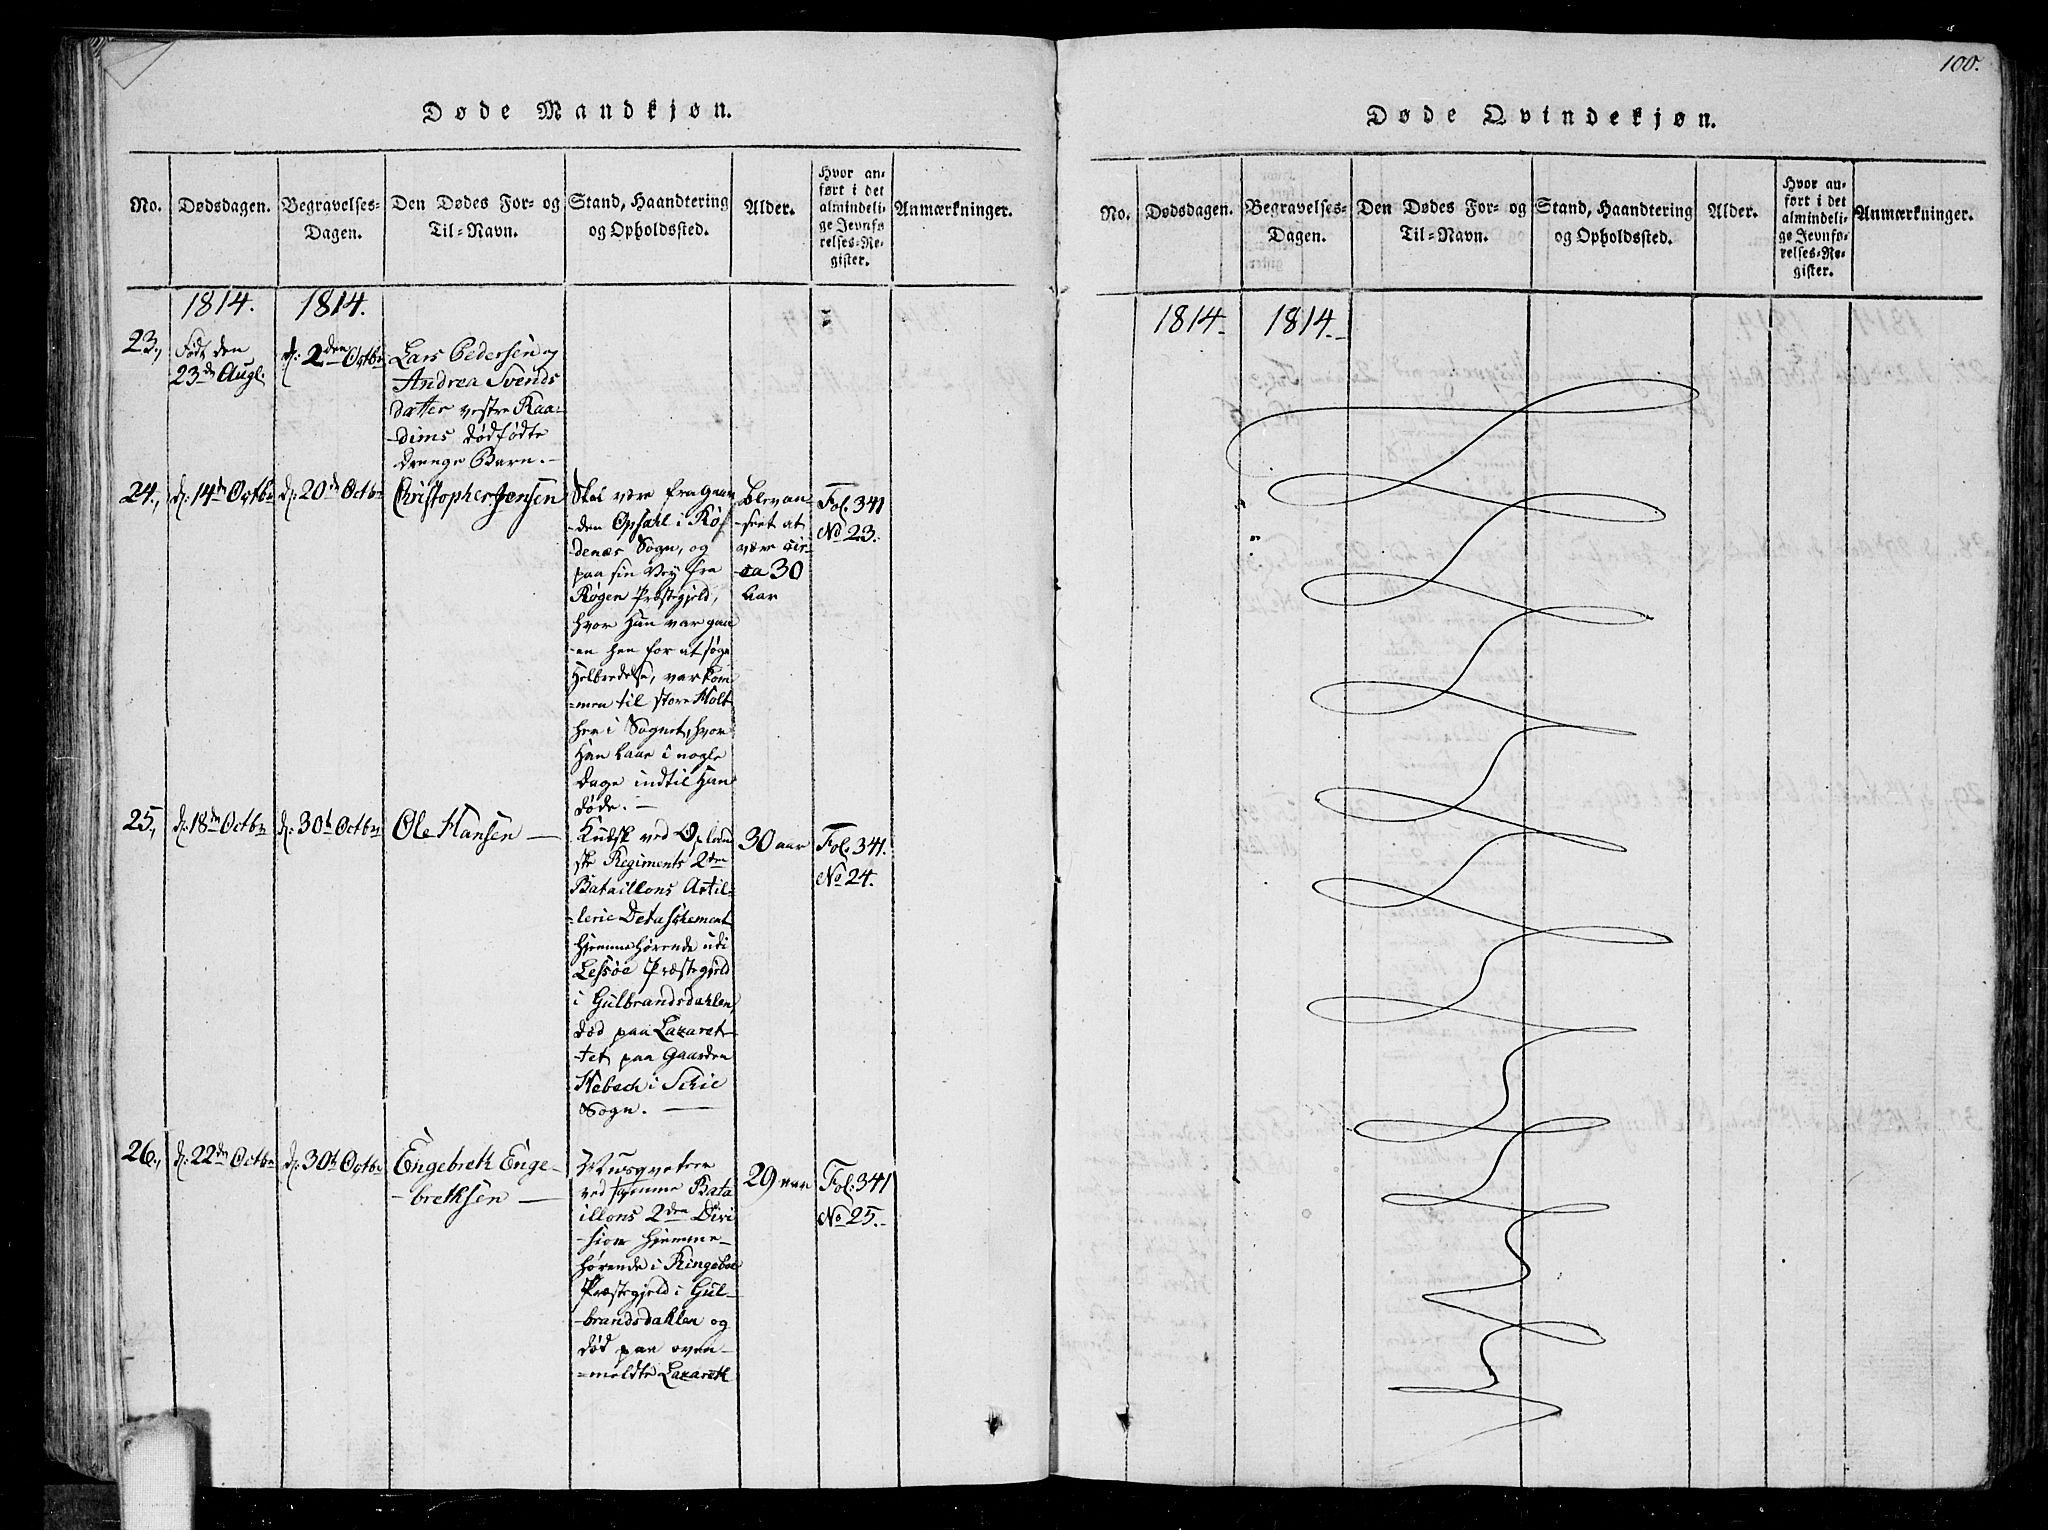 Døde Mandkjøn.
No.
Dødsdagen.
Begravelses-
Dagen.
Den Dødes For- og
Til-Navn.
Stand, Haandtering
og Opholdssted.
Alder.
Hvor an-
ført i det
almindeli-
ge Jevnfø-
relses-Re-
gister.
Anmærkninger.
1814.
1814.
23.,
Født den
23de Augt.
d: 2den Octbr
Lars Pedersen og
Andrea Svends
datter vestre Raa-
-dims dødfødte
drenge Barn.-
24.,
d: 14de Octbr
d: 20de Octbr
Christopher Jensen
Skal være fra Gaar
-den Opsahl i Rø-
denæs Sogn, og
paa sin Vej fra
Røgen Præstegjeld,
hvor Han var gaa
-en hen for at søge
Helbredelse, var kom
-men til store Holt
her i Sognet, hvor
Han laae i nogle
Dage indtil Han
døde.-
blev an-
-seet at
være cir-
ca 30
Aar
Fol. 341
No 23.
25.,
d: 18de Octbr
d: 30te Octbr
Ole Hansen
Kudsk ved Oplan
ske Regiments 2den
Bataillons Artil-
-lerie Detaschement
Hjemmehørende udi
Lessøe Præstegjeld
i Gulbrandsdahlen,
død paa Lazaret-
-tet paa Gaarden
Hebech i Schie
Sogn.
30 aar
Fol. 341.
No 24.
26.,
d: 22de Octbr
d: 30te Octbr
Engebreth Enge-
-brethsen
Musqveteer
ved samme Bata
illons 2den Divi
-sion hjemme-
hørende i Ringeboe
Præstegjeld i Gul-
-brandsdahlen og
død paa oven-
=meldte Lazareth
29 aar
Fol: 341
No 25.-
100.
Døde Qvindekjøn.
No.
Dødsdagen.
Begravelses-
Dagen.
Den Dødes For- og
Til-Navn.
Stand, Haandtering
og Opholdssted.
Alder.
Hvor an-
ført i det
almindeli-
ge Jevnfø-
relses-Re-
gister.
Anmærkninger.
1814.
1814.